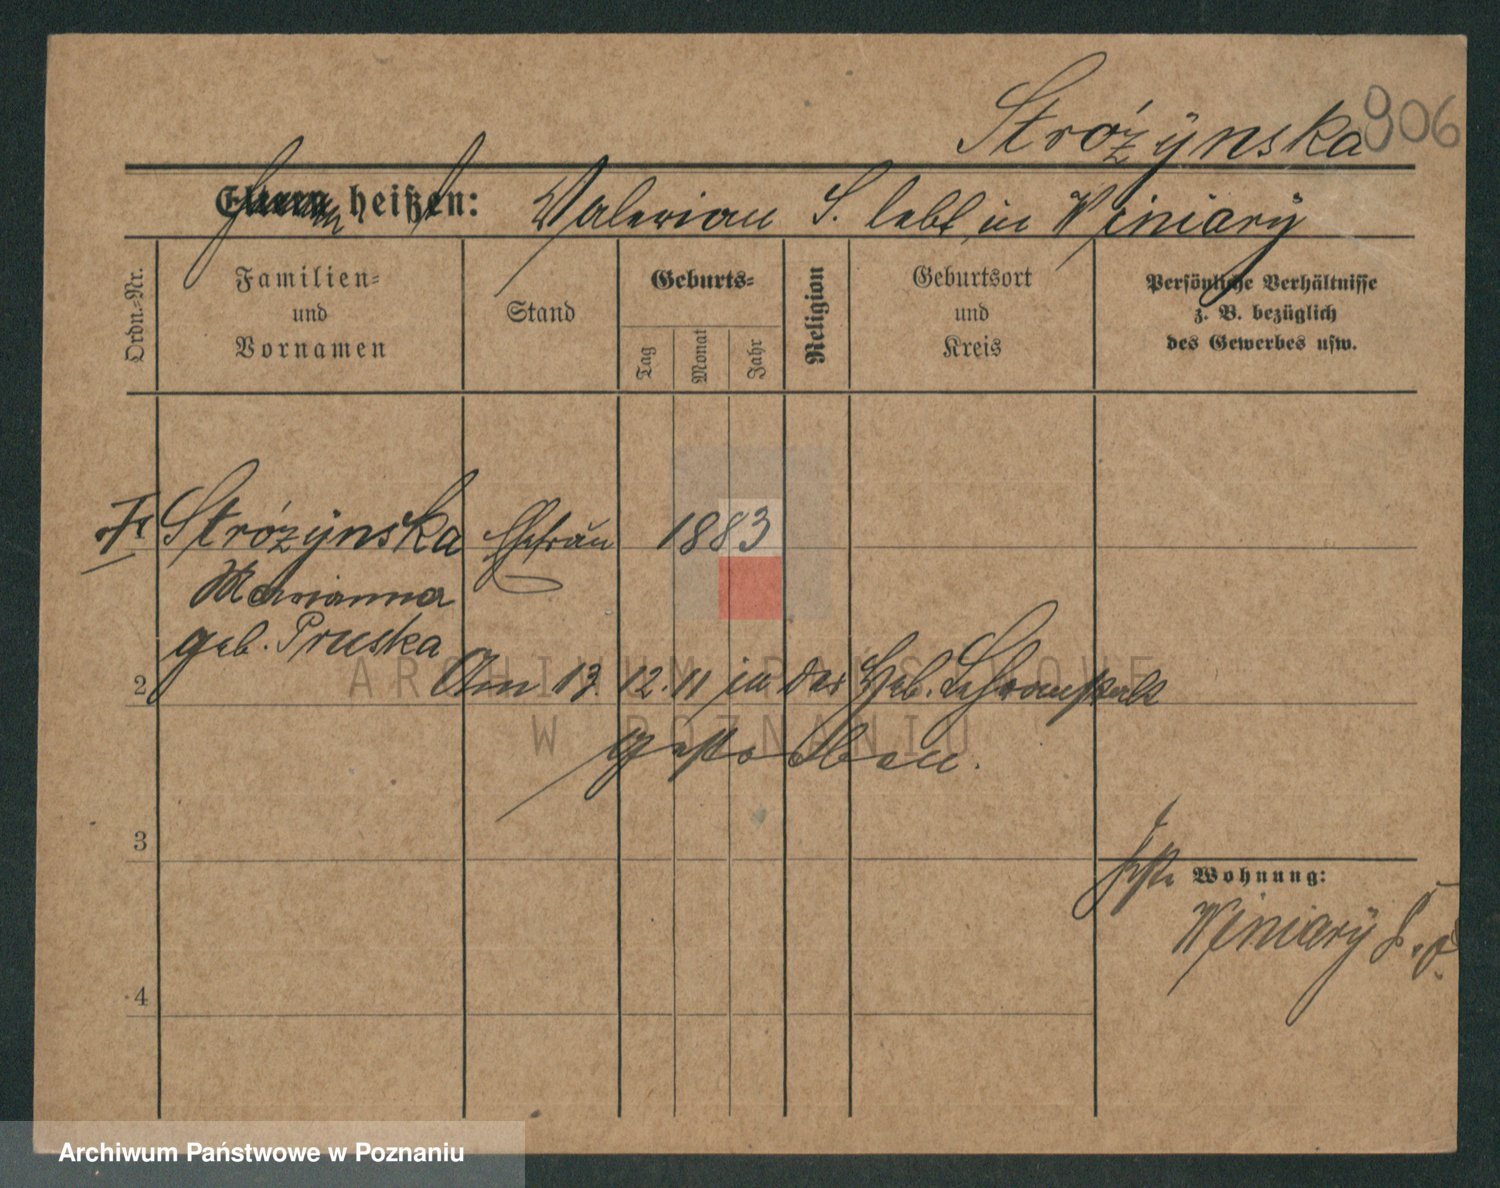 Stróżynska 906
Eltern heißen: Valerian S. lebt in Winiary
Ordn.=Nr.
Familien=
und
Vornamen
Stand
Geburts=
Tag
Monat
Jahr
Religion
Geburtsort
und
Kreis
Persönliche Verhältnisse
z. B. bezüglich
des Gewerbes usw.
Stróżynska Ehefrau 1883
Marianna
geb. Pruska
2 Am 13 12.11 in der Heb. Lehranstalt
gestorben.
3
Wohnung:
Winiary
4
ARCHIWUM PAŃSTWOWE
W POZNANIU
Archiwum Państwowe w Poznaniu